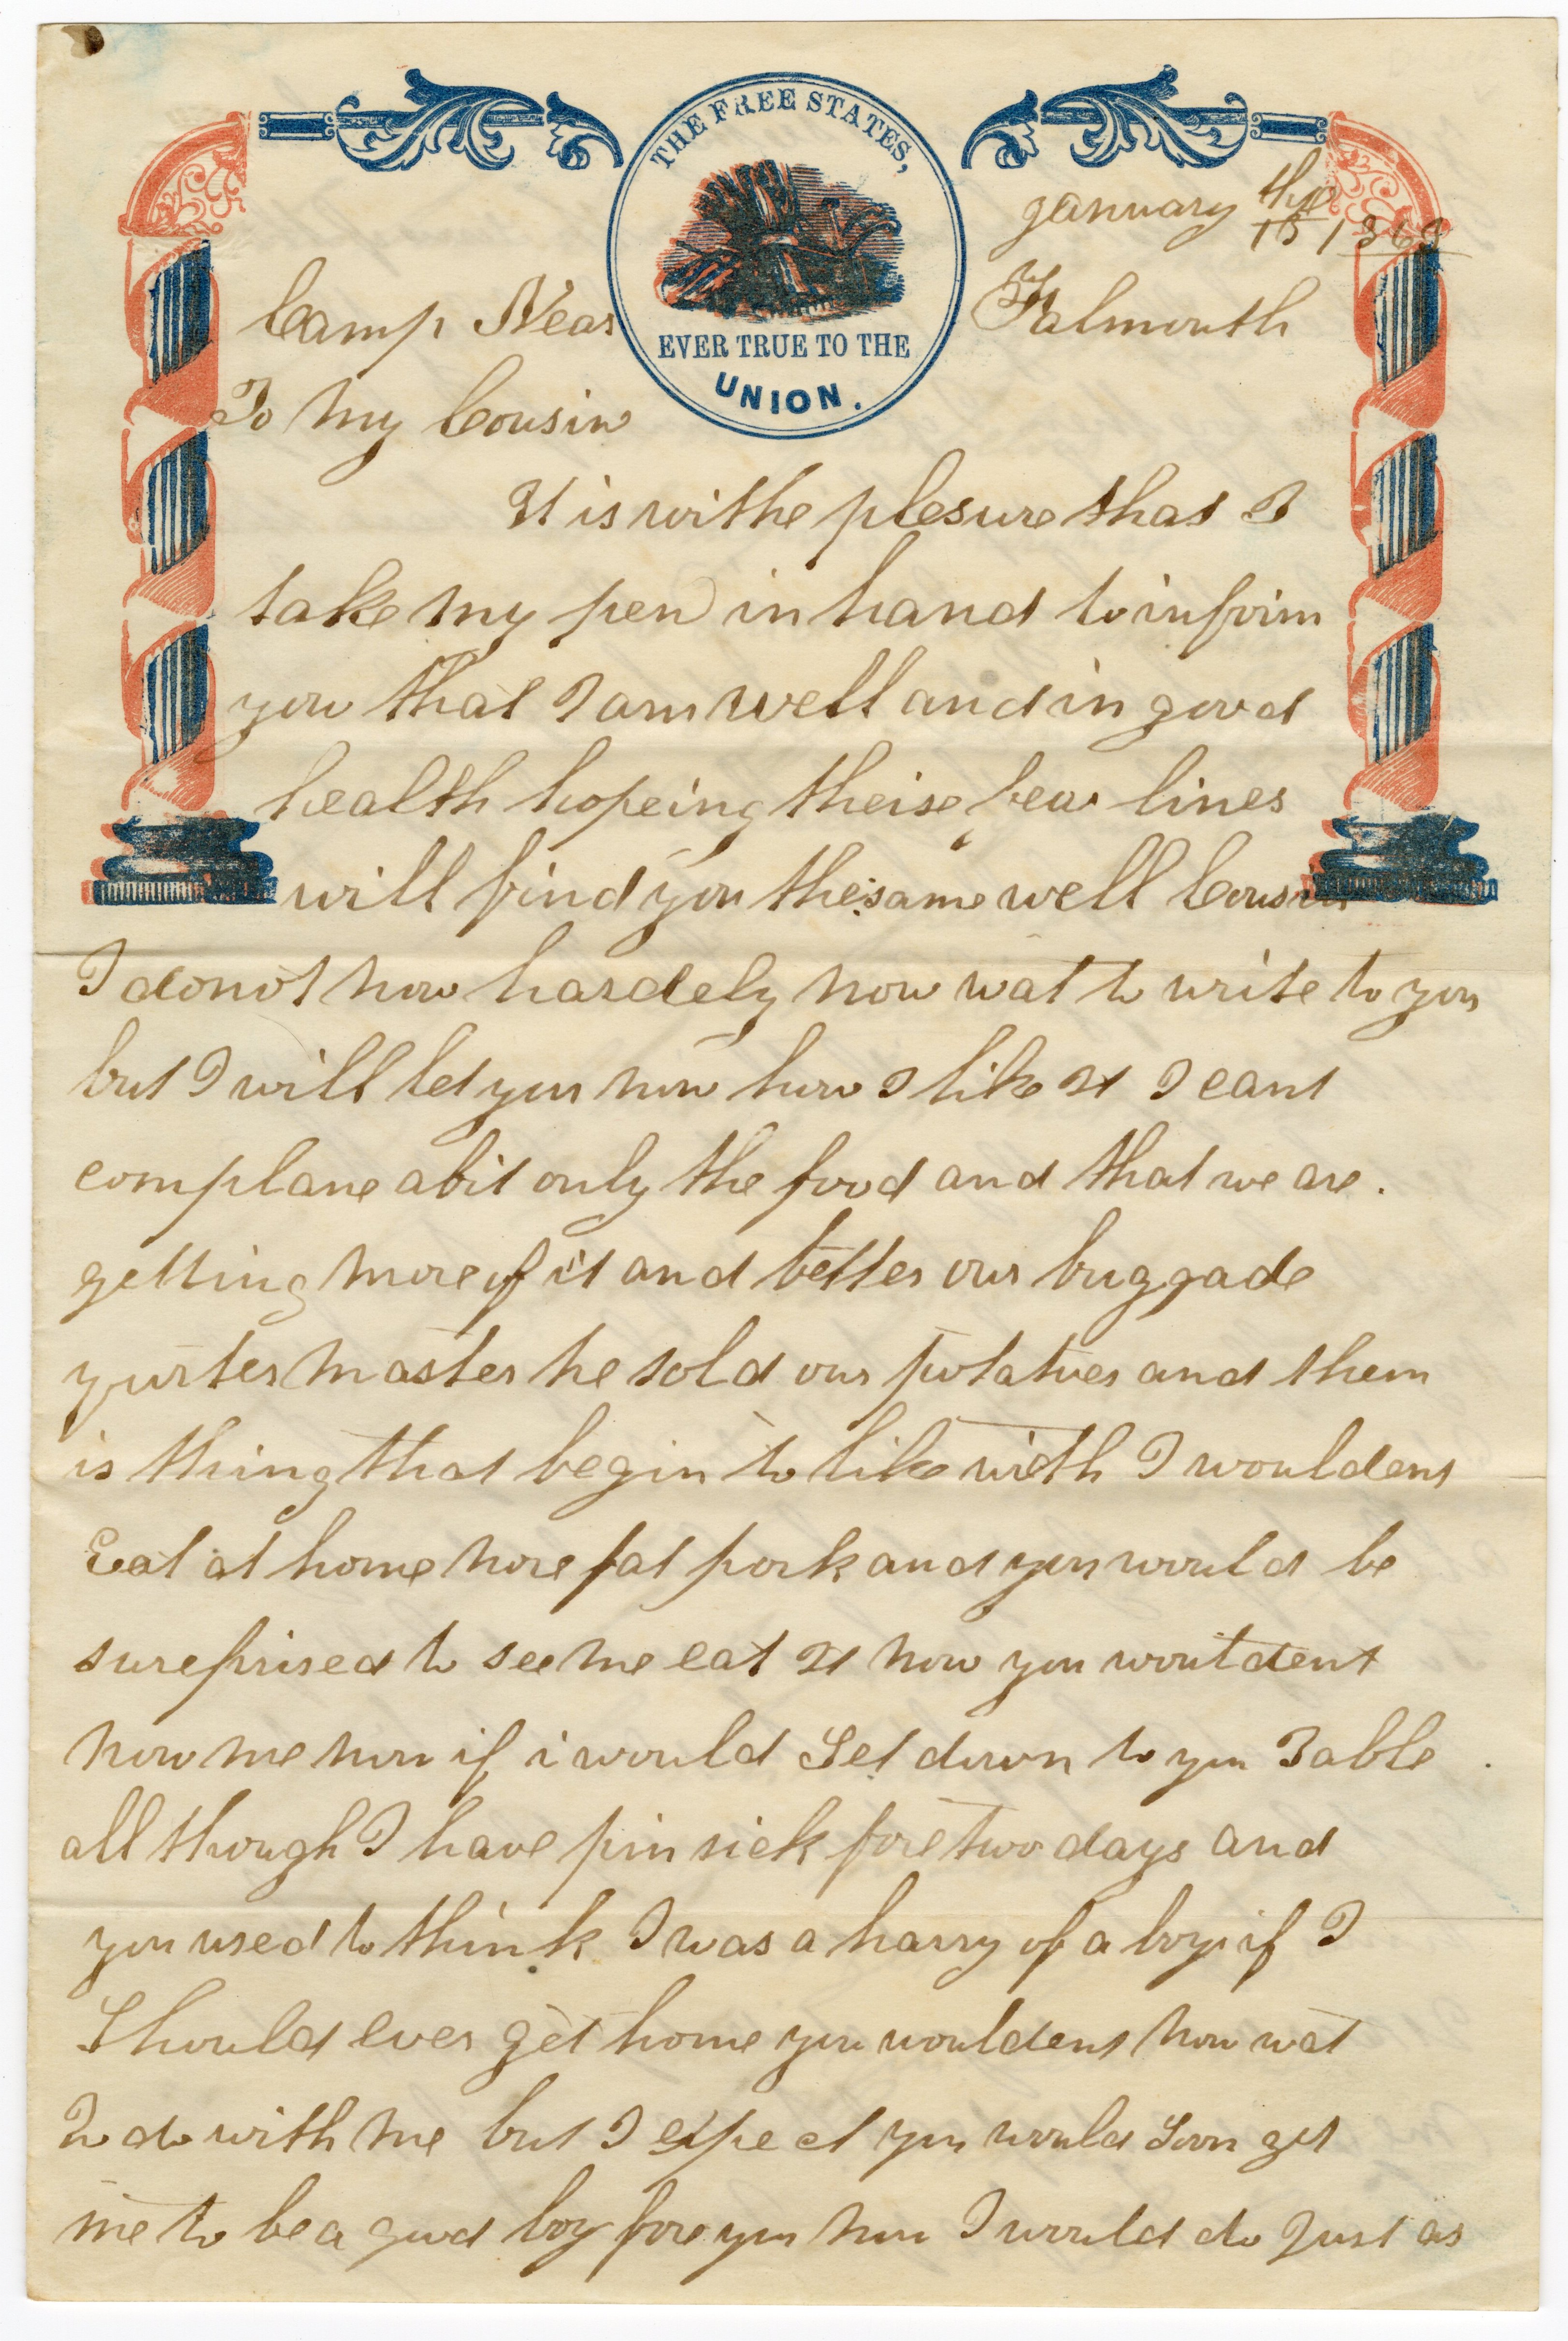 THE FREE STATES,
EVER TRUE TO THE
UNION.
January the
15 1863
Camp Near Falmouth
To My Cousin
It is withe plesure that I
take my pen in hand to inform
you that I am well and in good
health hopeing theise few lines
will find you the same well Cousin
I do not now hardely now wat to write to you
but I will let you now how I like It I cant
complane abit only the food and that we are.
getting more of it and better our buggade
qurter master he sold our potatoes and them
is thing that begin to like with I wouldent
Eat at home nore fat pork and you would be
sureprised to see me eat It now you woutdent
now me now if i would Set down to you Table
all though I have pin sick fore two days and
you used to think I was a harry of a boy if I
Should ever get home you wouldent now wat
To do with me but I expect you would Soon get
me to be a good boy fore you now I would do Just as